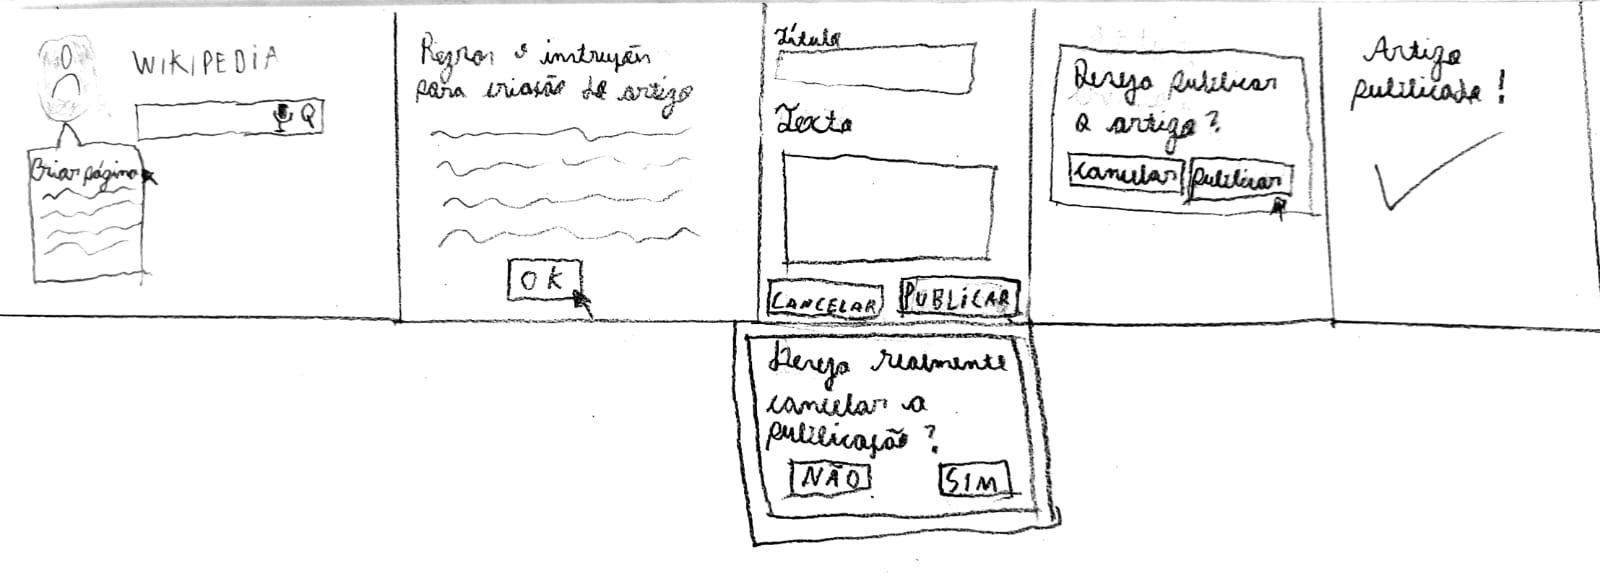 WIKIPEDIA
Criar página
Regras e instruções
para criação de artigo
OK
Título
Texto
CANCELAR PUBLICAR
Deseja publicar
o artigo?
cancelar publicar
Artigo
publicado!
Deseja realmente
cancelar a
publicação?
NÃO SIM